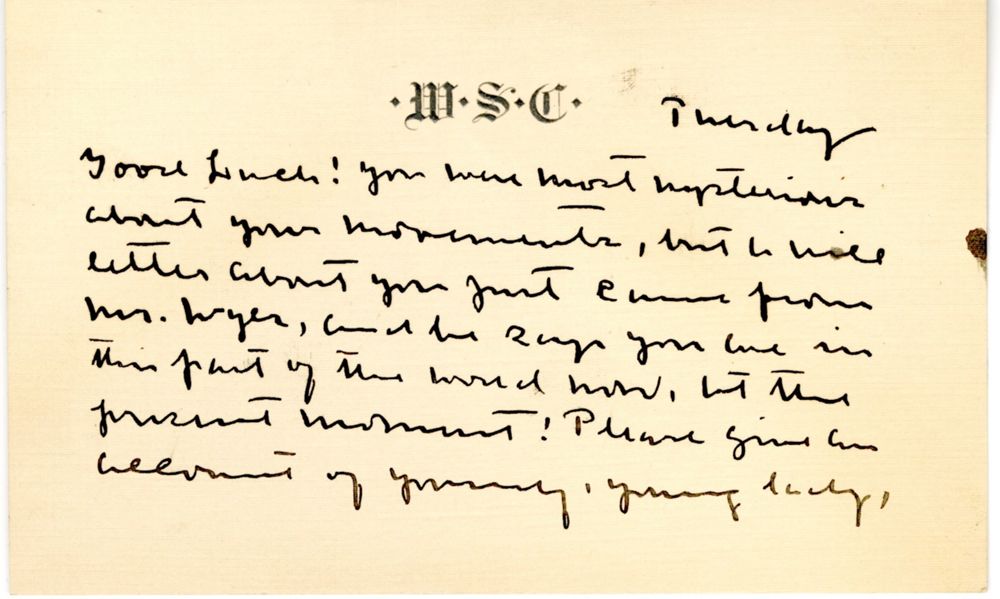 ·W·S·C·
Tuesday
Good Luck! you were most mysterious
about your movements, but a nice
letter about you just came from
Mr. and he says you are in
this part of the world now, at the
present moment! Please give an
account of yourself, young lady,